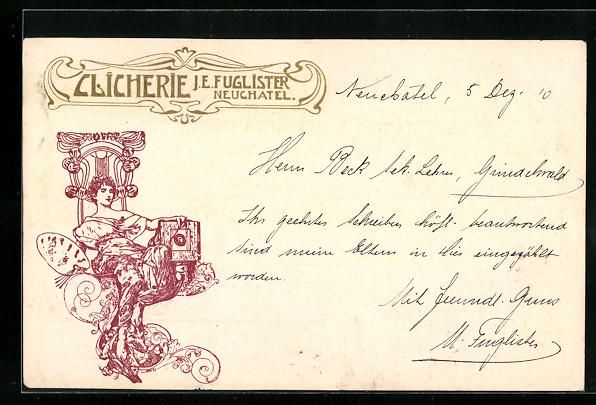 CLICHERIE J.E. FUGLISTER
NEUCHATEL.
Neuchâtel, 5 Dez. 10
Herrn Beck Sek. Lehrer, Grindelwald
Ihr geehrtes Schreiben höfl. beantwortend
sind meine Eltern in hier eingezählt
worden
Mit freundl. Gruss
M. Fuglister